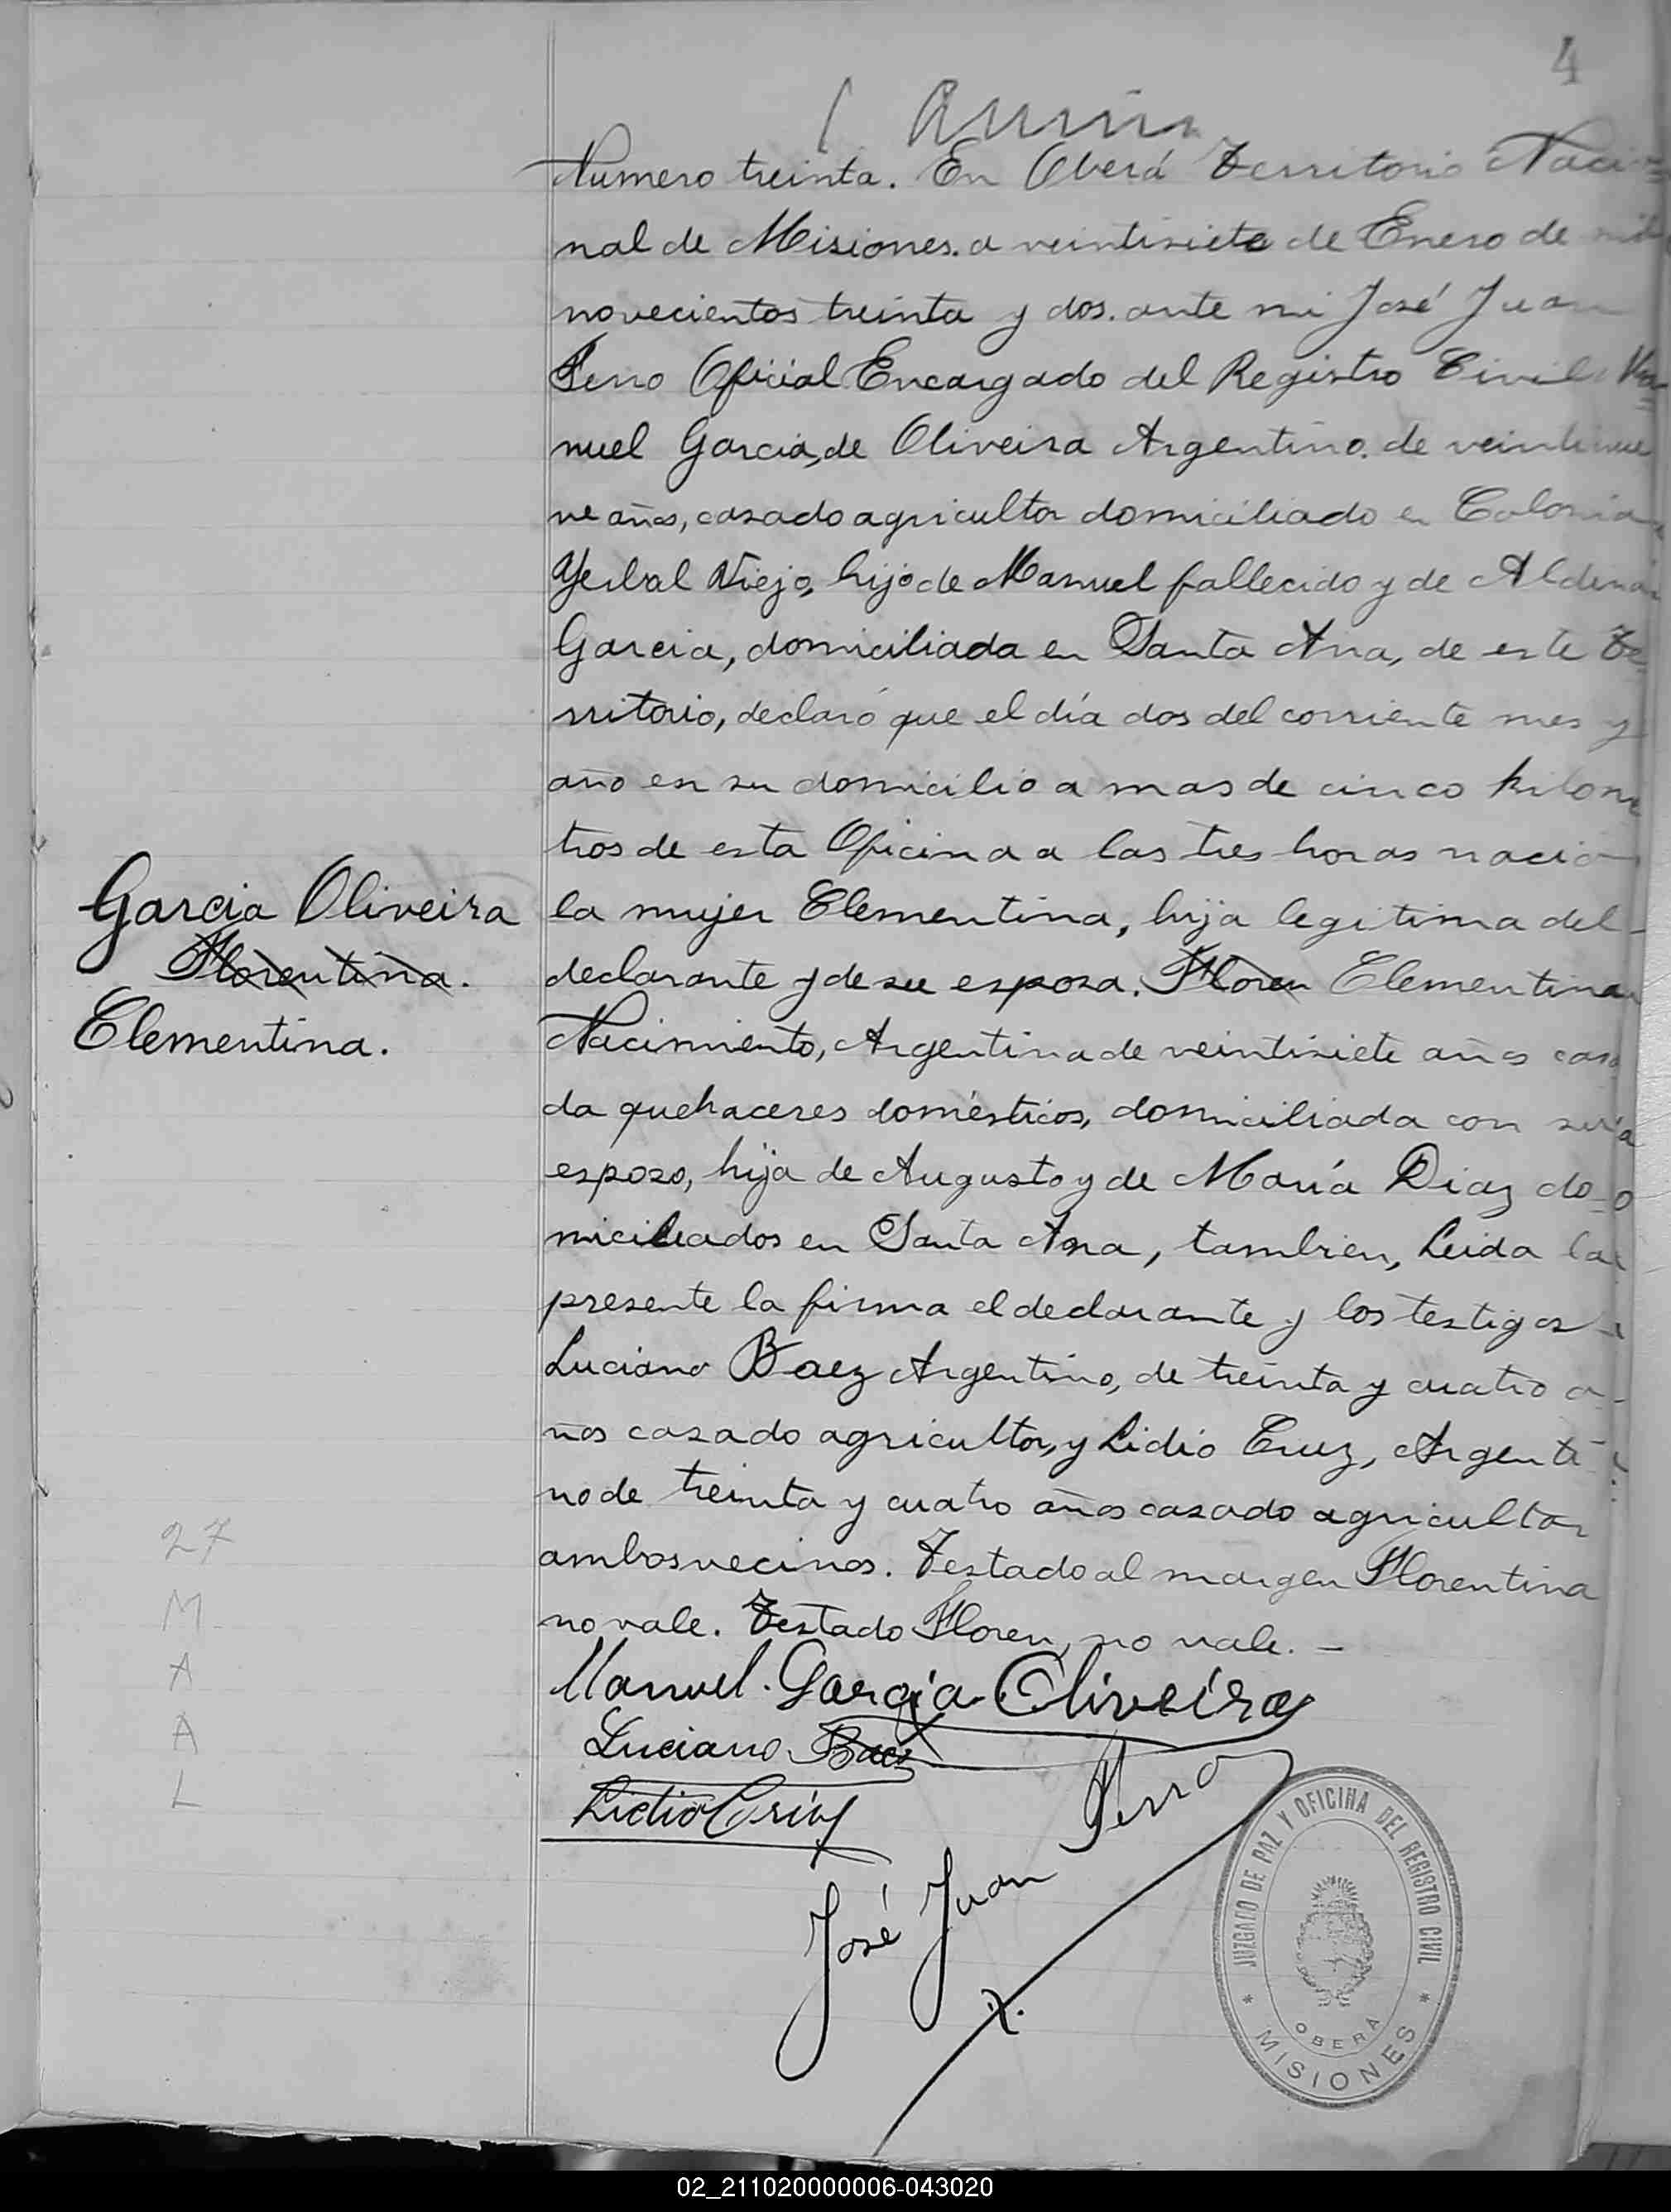 4
Numero treinta. En Oberá Territorio Nacio=
nal de Misiones. a veintisiete de Enero de mil
novecientos treinta y dos. ante mi José Juan
Perro Oficial Encargado del Registro Civil. Ma=
nuel Garcia, de Oliveira Argentino. de veintinue
ve años, casado agricultor domiciliado en Colonia
Yerbal Viejo, hijo de Manuel fallecido y de
Garcia, domiciliada en Santa Ana, de este Te-
rritorio, declaró que el día dos del corriente mes y
año en su domicilio a mas de cinco kilome
tros de esta Oficina a las tres horas nació
Garcia Oliveira
Florentina.
Clementina.
la mujer Clementina, hija legitima del-
declarante y de su esposa. Floren Clementina
Nacimiento, Argentina de veintisiete años casa
da quehaceres domésticos, domiciliada con su
esposo, hija de Augusto y de María Diaz do-
miciliados en Santa Ana, tambien, Leida la
presente la firma el declarante y los testigos
Luciano Baez Argentino, de treinta y cuatro a-
ños casado agricultor, y Lidio Cruz, Argenti
no de treinta y cuatro años casado agricultor
ambos vecinos. Testado al margen Florentina
no vale. Testado Floren, no vale. -
27
M
A
A
L
Manuel. Garcia. Oliveira
Luciano Baez
Lidio Cruz
José Juan Perro
JUZGADO DE PAZ Y OFICINA DEL REGISTRO CIVIL
* OBERÁ *
MISIONES
02_211020000006-043020